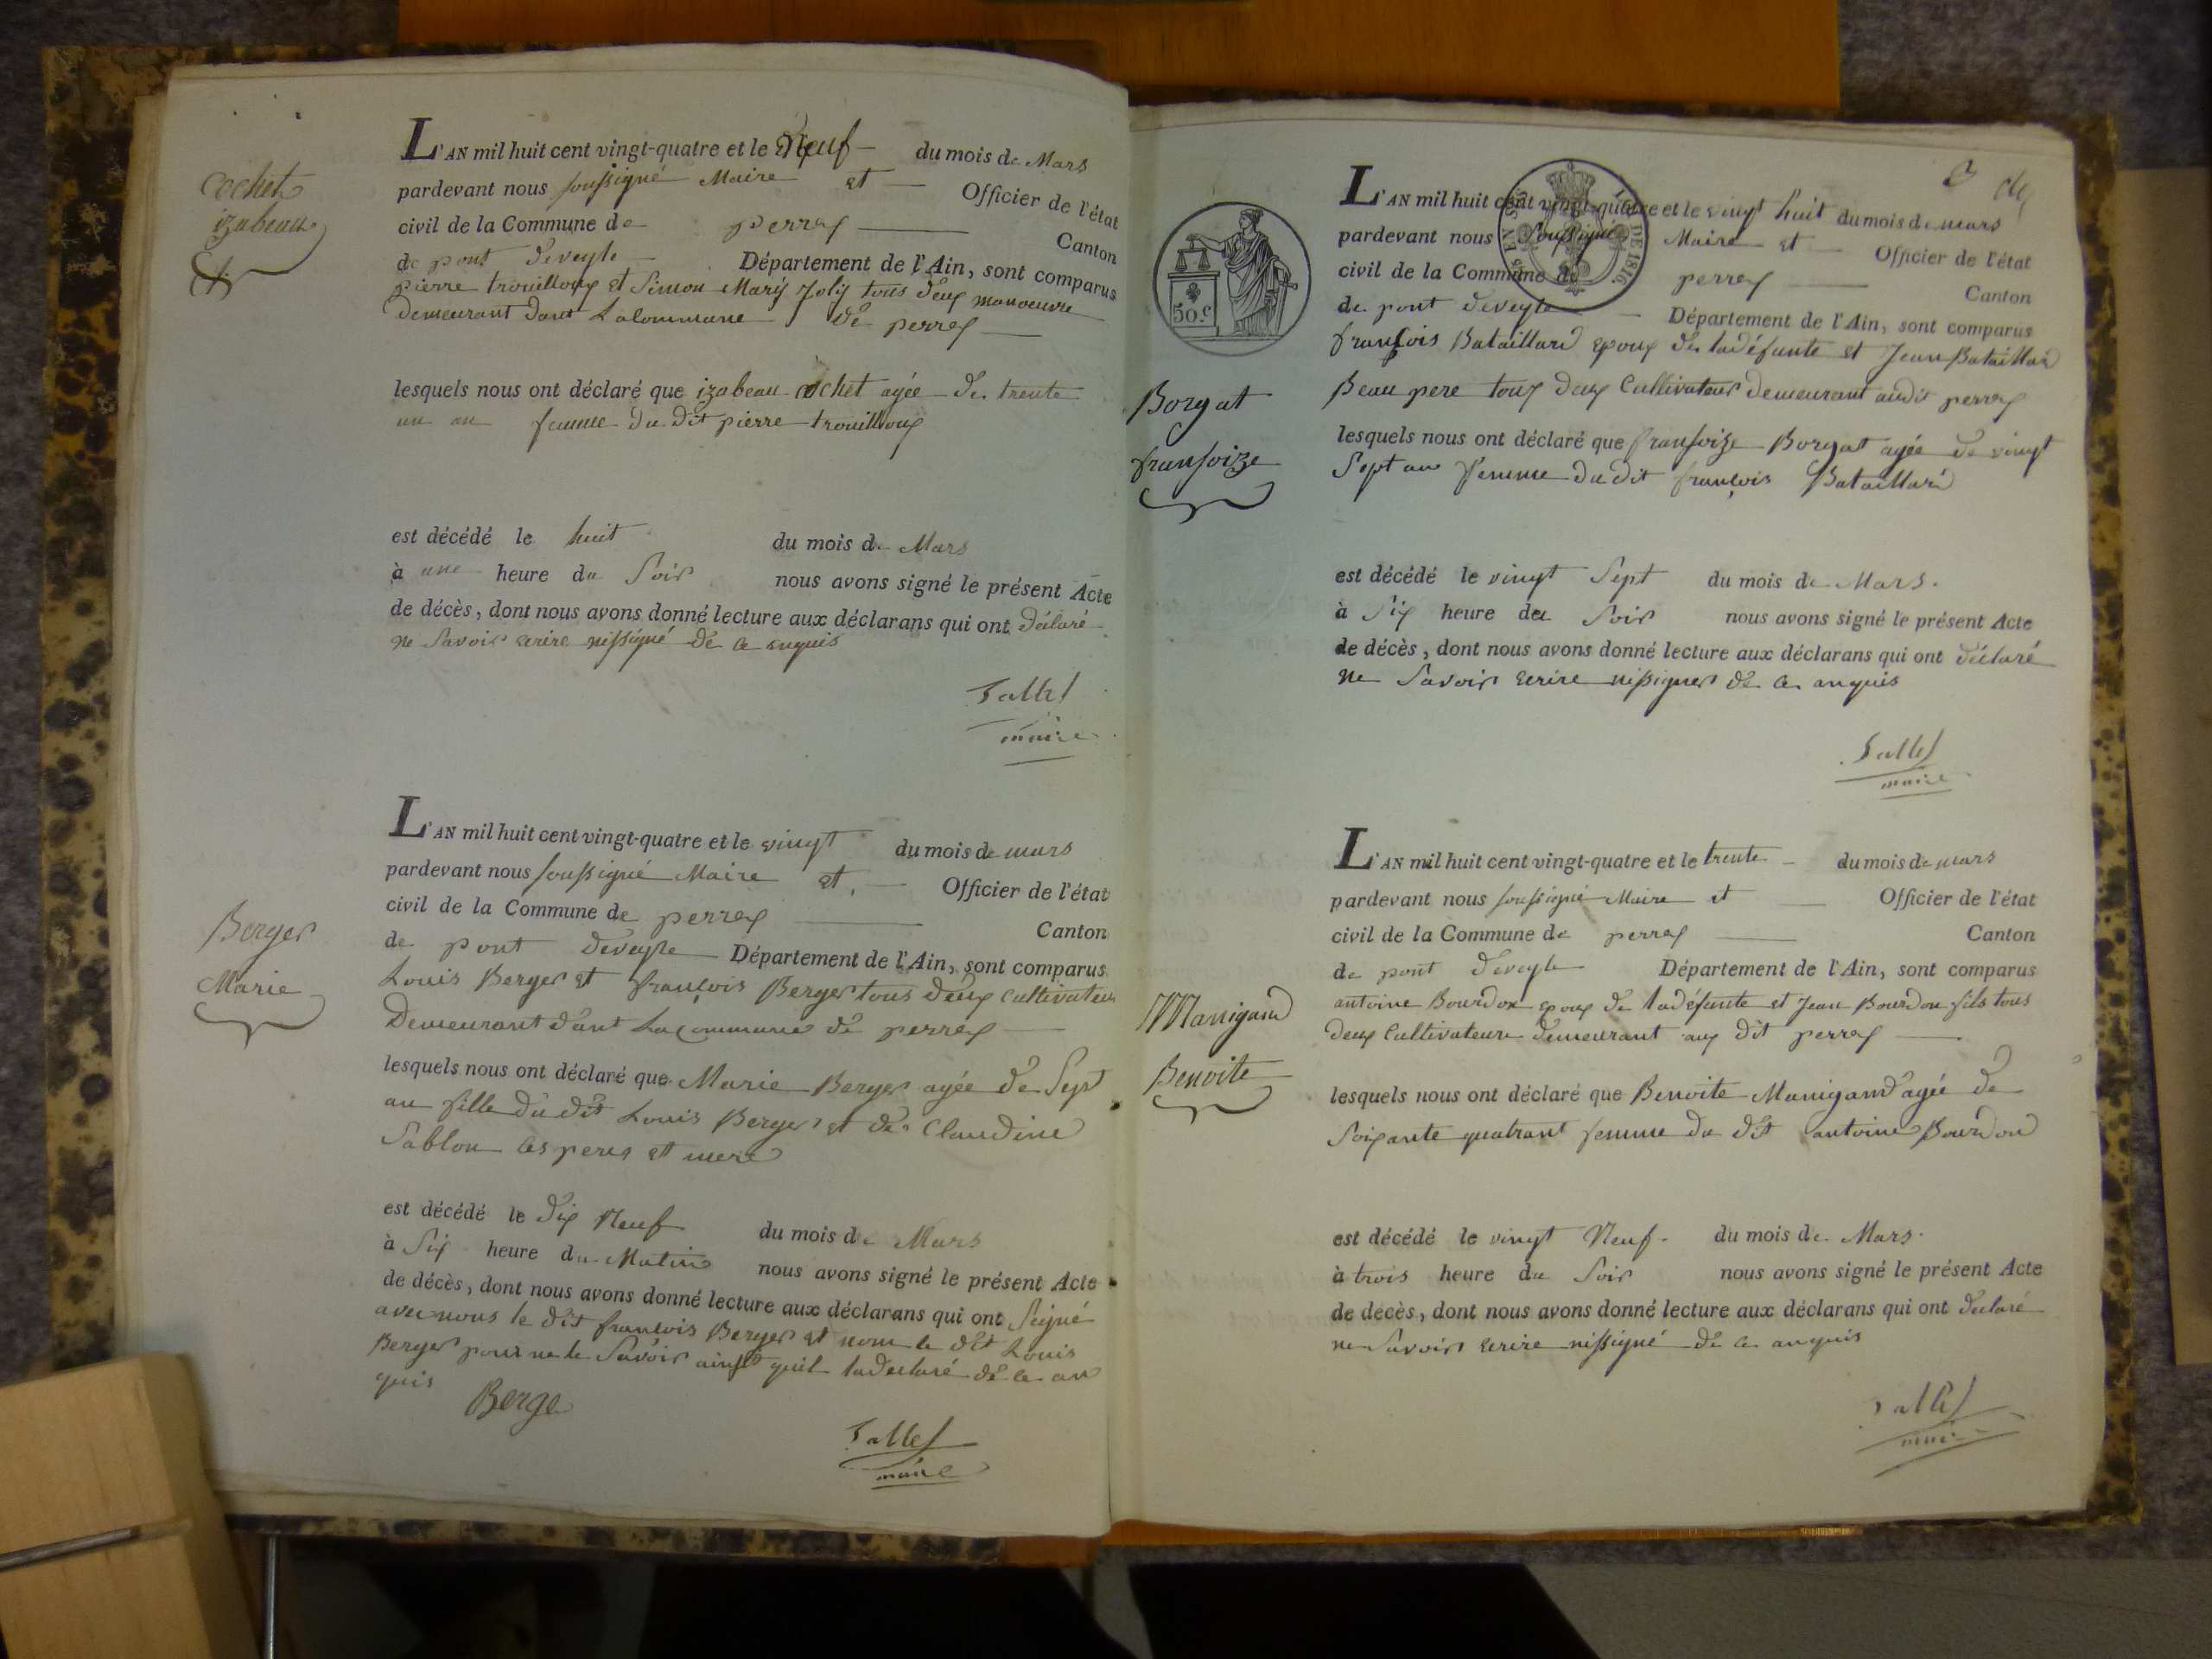 Cochet
izabeau
L'AN mil huit cent vingt-quatre et le Neuf — du mois de Mars
pardevant nous soussigné Maire et — Officier de l'état
civil de la Commune de perrex — Canton
de pont deveyle — Département de l'Ain, sont comparus
pierre trouilloux et Simon Mary Joly tous deux manoeuvre
Demeurant Dant La Commune De perrex —
lesquels nous ont déclaré que izabeau Cochet agée De trente
un an femme Du Dit pierre trouilloux
est décédé le huit du mois de Mars
à une heure du Soir nous avons signé le présent Acte
de décès, dont nous avons donné lecture aux déclarans qui ont déclaré
ne Savoir ecrire nissigné De ce enquis
maire
Berger
Marie
L'AN mil huit cent vingt-quatre et le vingt du mois de mars
pardevant nous soussigné Maire et — Officier de l'état
civil de la Commune de perrex — Canton
de pont deveyle — Département de l'Ain, sont comparus
Louis Berger et françois Berger tous deux cultivateur
Demeurant dant La commune de perrex —
lesquels nous ont déclaré que Marie Berger agée de Sept
an fille du dit Louis Berger et de Claudine
Sablon ces peres et mere
est décédé le dix Neuf du mois de Mars
à Six heure du Matin nous avons signé le présent Acte
de décès, dont nous avons donné lecture aux déclarans qui ont Seigné
avec nous le dit françois Berger et nom le dit Louis
Berger pour ne le Savoir ainsit quil ladeclaré de ce an
quis
Berge
maire
3
50 c.
DE 1816
Borgat
fransoize
L'AN mil huit cent vingt-quatre et le vingt huit du mois de mars
pardevant nous Soussigné Maire et — Officier de l'état
civil de la Commune de perrex — Canton
de pont deveyle — Département de l'Ain, sont comparus
françois Bataillard epoux de ladéfunte et Jean Bataillard
Beau pere tous deux Cultivateur demeurant audit perrex
lesquels nous ont déclaré que fransoize Borgat agée de vingt
Sept an femme du dit françois Bataillard
est décédé le vingt Sept du mois de Mars.
à Six heure du Soir nous avons signé le présent Acte
de décès, dont nous avons donné lecture aux déclarans qui ont déclaré
ne Savoir ecrire nissigner de ce anquis
maire
Manigand
Benoite
L'AN mil huit cent vingt-quatre et le trente — du mois de mars
pardevant nous soussigné Maire et — Officier de l'état
civil de la Commune de perrex — Canton
de pont deveyle Département de l'Ain, sont comparus
antoine Bourdon epoux de ladéfunte et Jean Bourdon fils tous
deux Cultivateure demeurant aux dit perrex —
lesquels nous ont déclaré que Benoite Manigand agée de
Soixante quatrant femme du dit antoine Bourdon
est décédé le vingt Neuf. du mois de Mars.
à trois heure du Soir nous avons signé le présent Acte
de décès, dont nous avons donné lecture aux déclarans qui ont declaré
ne Savoir ecrire nissigné de ce anquis
maire